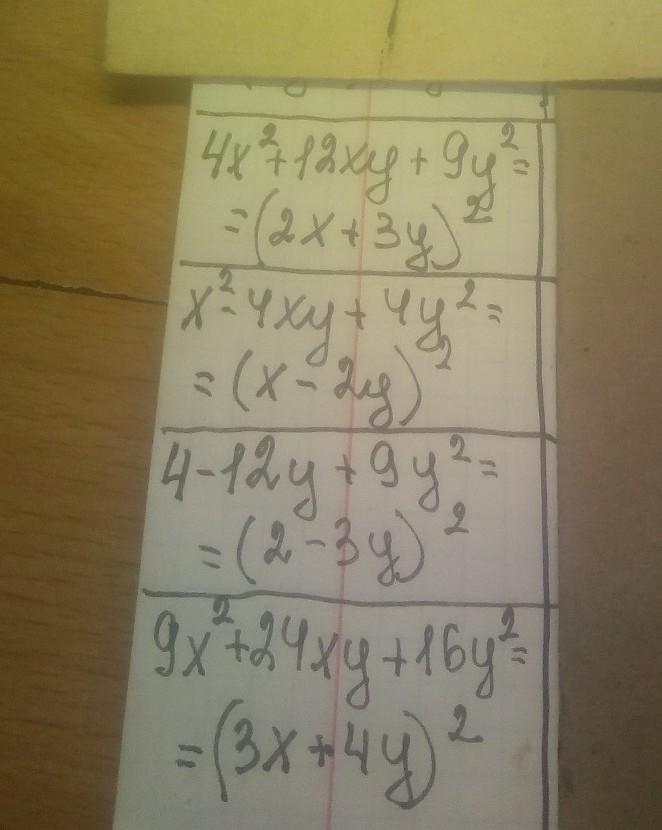 4x²+12xy+9y²=
=(2x+3y)²
x²-4xy+4y²=
=(x-2y)²
4-12y+9y²=
=(2-3y)²
9x²+24xy+16y²=
=(3x+4y)²